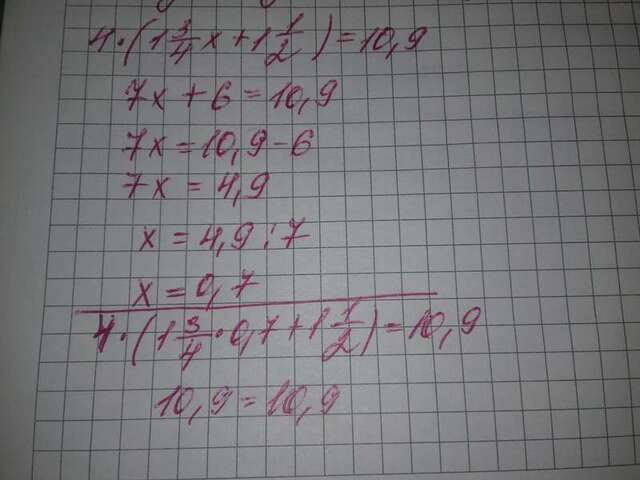 4·(1 3/4 x + 1 1/2) = 10,9
7x + 6 = 10,9
7x = 10,9 - 6
7x = 4,9
x = 4,9 : 7
x = 0,7
4·(1 3/4 · 0,7 + 1 1/2) = 10,9
10,9 = 10,9